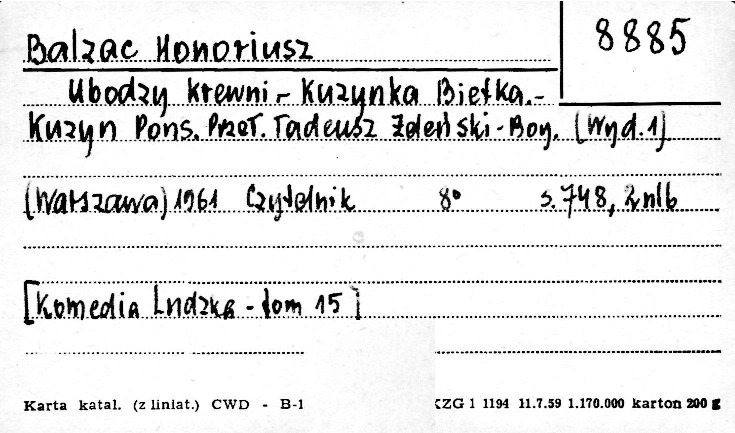 Balzac Honoriusz
8885
Ubodzy krewni - Kuzynka Bietka.-
Kuzyn Pons. Przeł. Tadeusz Żeleński-Boy. (Wyd.1)
(Warszawa) 1961 Czytelnik 8° s.748, 2nlb
[Komedia Ludzka - tom 15]
Karta katal. (z liniat.) CWD - B-1
KZG 1 1194 11.7.59 1.170.000 karton 200 g